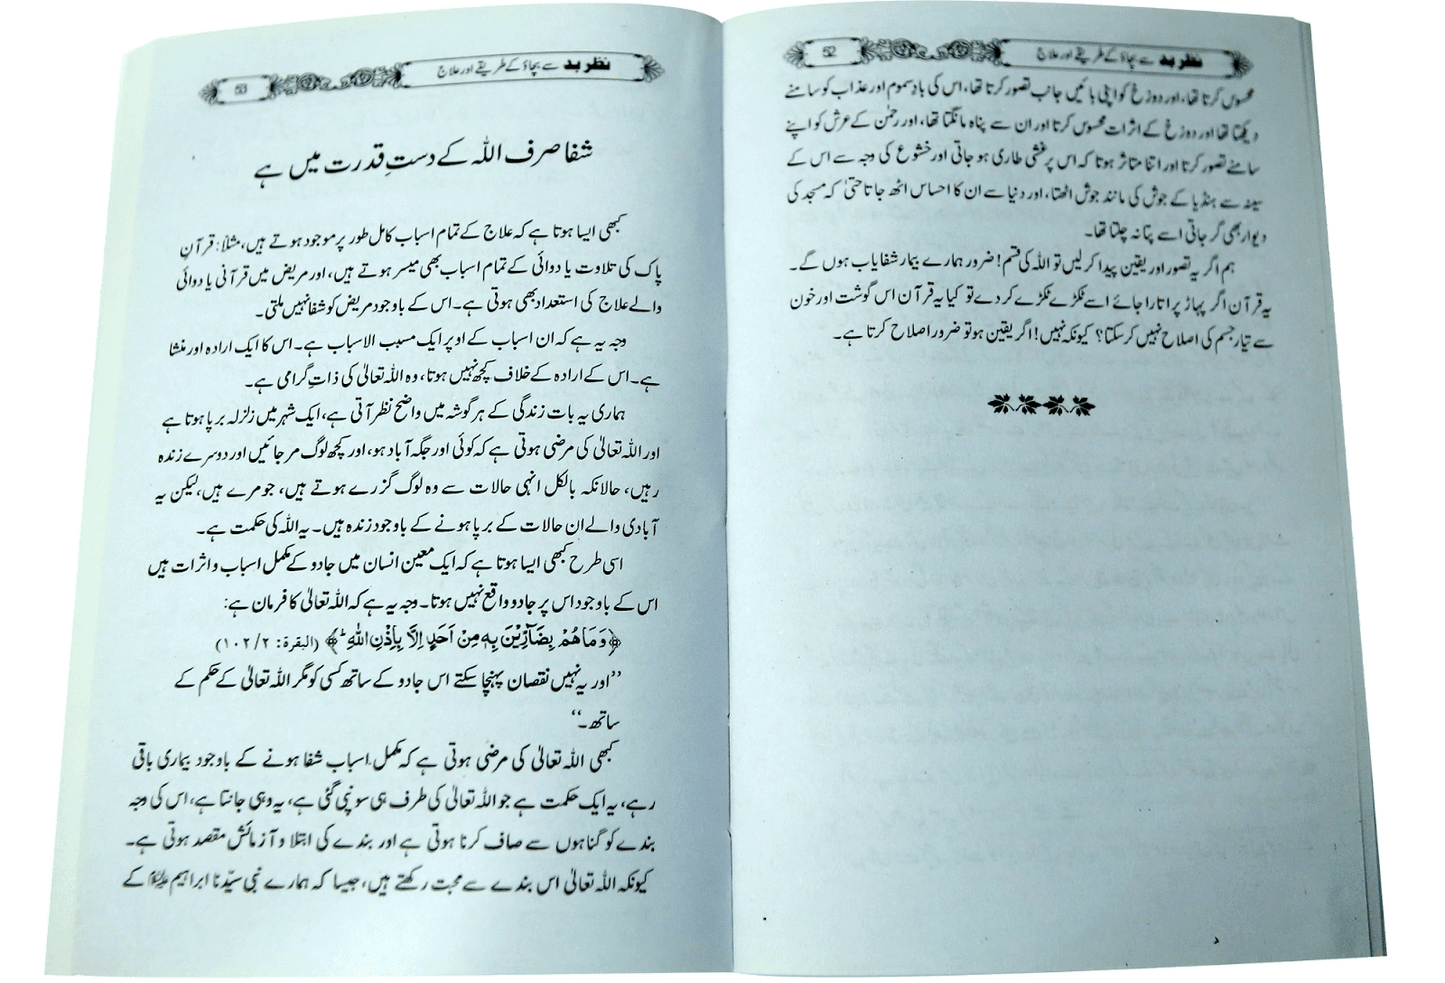 52
نظر بد سے بچاؤ کے طریقے اور علاج
محسوس کرتا تھا، اور دوزخ کو اپنی بائیں جانب تصور کرتا تھا، اس کی بادِ سموم اور عذاب کو سامنے
دیکھتا تھا اور دوزخ کے اثرات محسوس کرتا اور ان سے پناہ مانگتا تھا، اور رحمٰن کے عرش کو اپنے
سامنے تصور کرتا اور اتنا متاثر ہوتا کہ اس پر غشی طاری ہو جاتی اور خشوع کی وجہ سے اس کے
سینہ سے ہنڈیا کے جوش کی مانند جوش اٹھتا، اور دنیا سے ان کا احساس اٹھ جاتا حتیٰ کہ مسجد کی
دیوار بھی گر جاتی اسے پتا نہ چلتا تھا۔
ہم اگر یہ تصور اور یقین پیدا کر لیں تو اللہ کی قسم! ضرور ہمارے بیمار شفایاب ہوں گے۔
یہ قرآن اگر پہاڑ پر اتارا جائے اسے ٹکڑے ٹکڑے کر دے تو کیا یہ قرآن اس گوشت اور خون
سے تیار جسم کی اصلاح نہیں کر سکتا؟ کیونکہ نہیں! اگر یقین ہو تو ضرور اصلاح کرتا ہے۔
53
نظر بد سے بچاؤ کے طریقے اور علاج
شفا صرف اللہ کے دستِ قدرت میں ہے
کبھی ایسا ہوتا ہے کہ علاج کے تمام اسباب کامل طور پر موجود ہوتے ہیں، مثلاً: قرآنِ
پاک کی تلاوت یا دوائی کے تمام اسباب بھی میسر ہوتے ہیں، اور مریض میں قرآنی یا دوائی
والے علاج کی استعداد بھی ہوتی ہے۔ اس کے باوجود مریض کو شفا نہیں ملتی۔
وجہ یہ ہے کہ ان اسباب کے اوپر ایک مسبب الاسباب ہے۔ اس کا ایک ارادہ اور منشا
ہے۔ اس کے ارادہ کے خلاف کچھ نہیں ہوتا، وہ اللہ تعالیٰ کی ذاتِ گرامی ہے۔
ہماری یہ بات زندگی کے ہر گوشہ میں واضح نظر آتی ہے، ایک شہر میں زلزلہ برپا ہوتا ہے
اور اللہ تعالیٰ کی مرضی ہوتی ہے کہ کوئی اور جگہ آباد ہو، اور کچھ لوگ مر جائیں اور دوسرے زندہ
رہیں، حالانکہ بالکل انہی حالات سے وہ لوگ گزرے ہوتے ہیں، جو مرے ہیں، لیکن یہ
آبادی والے ان حالات کے برپا ہونے کے باوجود زندہ ہیں۔ یہ اللہ کی حکمت ہے۔
اسی طرح کبھی ایسا ہوتا ہے کہ ایک معین انسان میں جادو کے مکمل اسباب و اثرات ہیں
اس کے باوجود اس پر جادو واقع نہیں ہوتا۔ وجہ یہ ہے کہ اللہ تعالیٰ کا فرمان ہے:
﴿وَمَا هُمْ بِضَآرِّيْنَ بِهٖ مِنْ اَحَدٍ اِلَّا بِاِذْنِ اللّٰهِ ؕ﴾ (البقرة: ۱۰۲/۲)
’’اور یہ نہیں نقصان پہنچا سکتے اس جادو کے ساتھ کسی کو مگر اللہ تعالیٰ کے حکم کے
ساتھ۔‘‘
کبھی اللہ تعالیٰ کی مرضی ہوتی ہے کہ مکمل اسباب شفا ہونے کے باوجود بیماری باقی
رہے، یہ ایک حکمت ہے جو اللہ تعالیٰ کی طرف ہی سونپی گئی ہے، یہ وہی جانتا ہے، اس کی وجہ
بندے کو گناہوں سے صاف کرنا ہوتی ہے اور بندے کی ابتلا و آزمائش مقصد ہوتی ہے۔
کیونکہ اللہ تعالیٰ اس بندے سے محبت رکھتے ہیں، جیسا کہ ہمارے نبی سیّدنا ابراہیم علیہ السلام کے